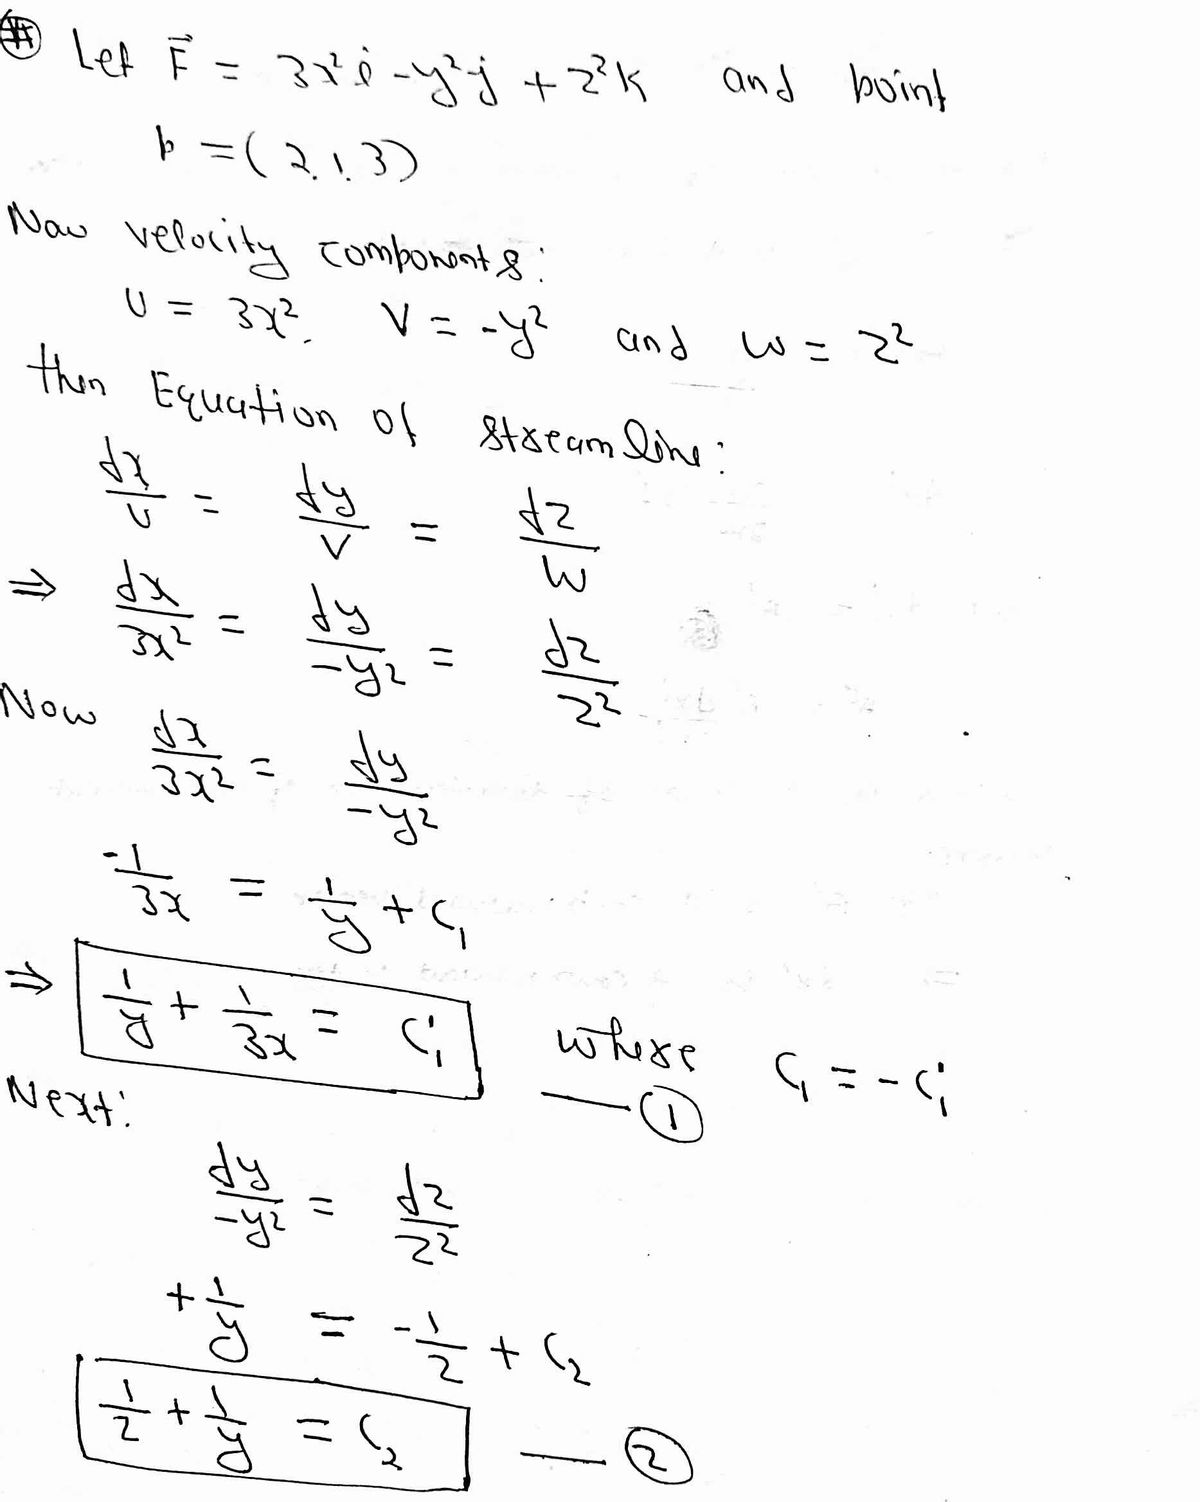 # Let F⃗ = 3x²i - y²j + z²k and point
p = (2, 1, 3)
Now velocity components:
U = 3x², V = -y² and w = z²
then Equation of streamline:
dx/U = dy/V = dz/W
⇒ dx/3x² = dy/-y² = dz/z²
Now dx/3x² = dy/-y²
-1/3x = 1/y + C₁
⇒ 1/y + 1/3x = C₁' where C₁ = -C₁' — ①
Next:
dy/-y² = dz/z²
+1/y = -1/z + C₂
1/z + 1/y = C₂ — ②